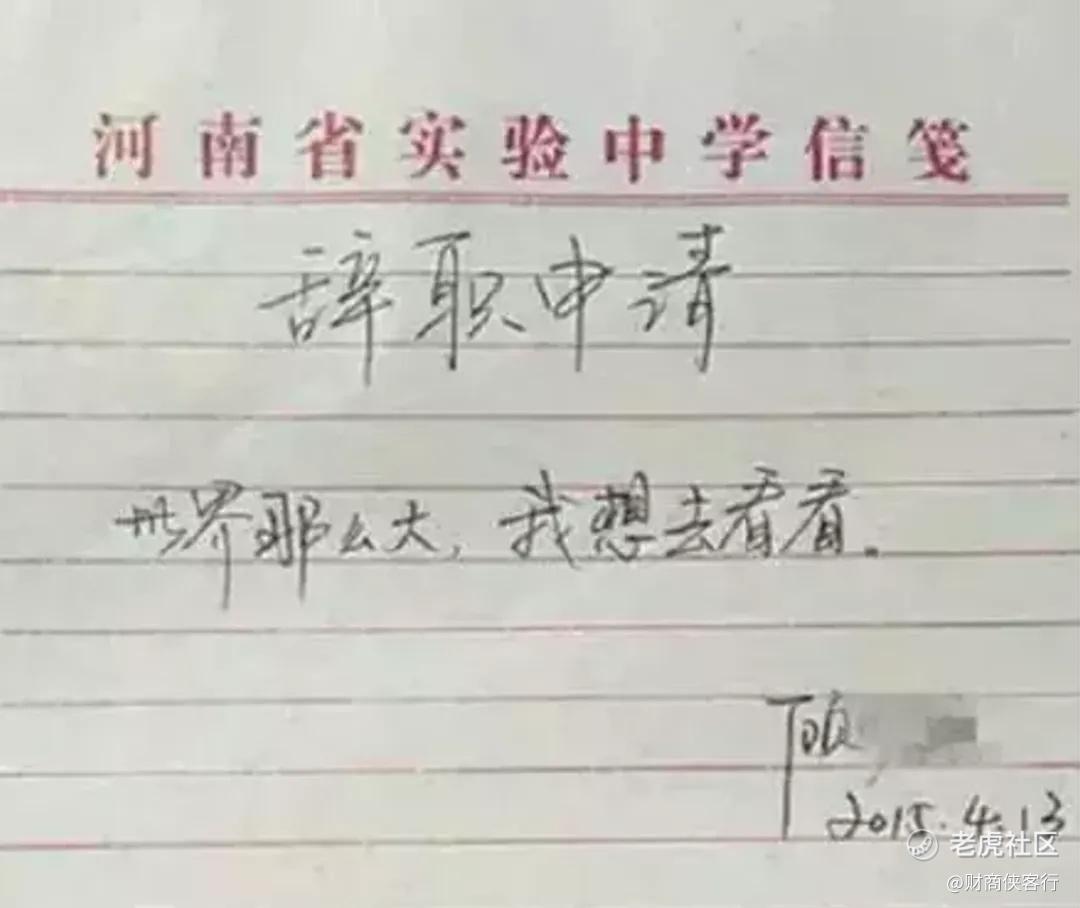 河南省实验中学信笺
辞职申请
世界那么大，我想去看看。
顾
2015.4.13
老虎社区
@财商侠客行